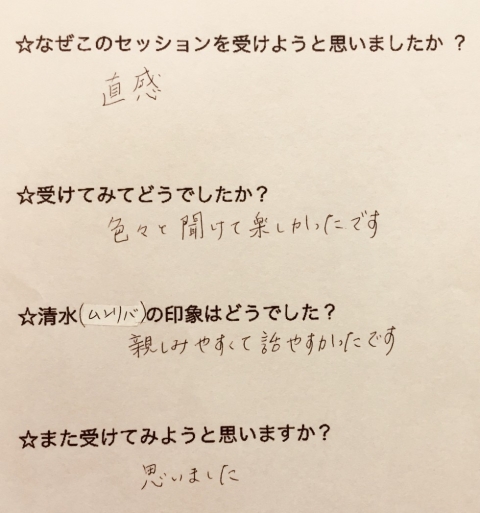 ☆なぜこのセッションを受けようと思いましたか？
直感
☆受けてみてどうでしたか？
色々と聞けて楽しかったです
☆清水(ムソリバ)の印象はどうでした？
親しみやすくて話やすかったです
☆また受けてみようと思いますか？
思いました